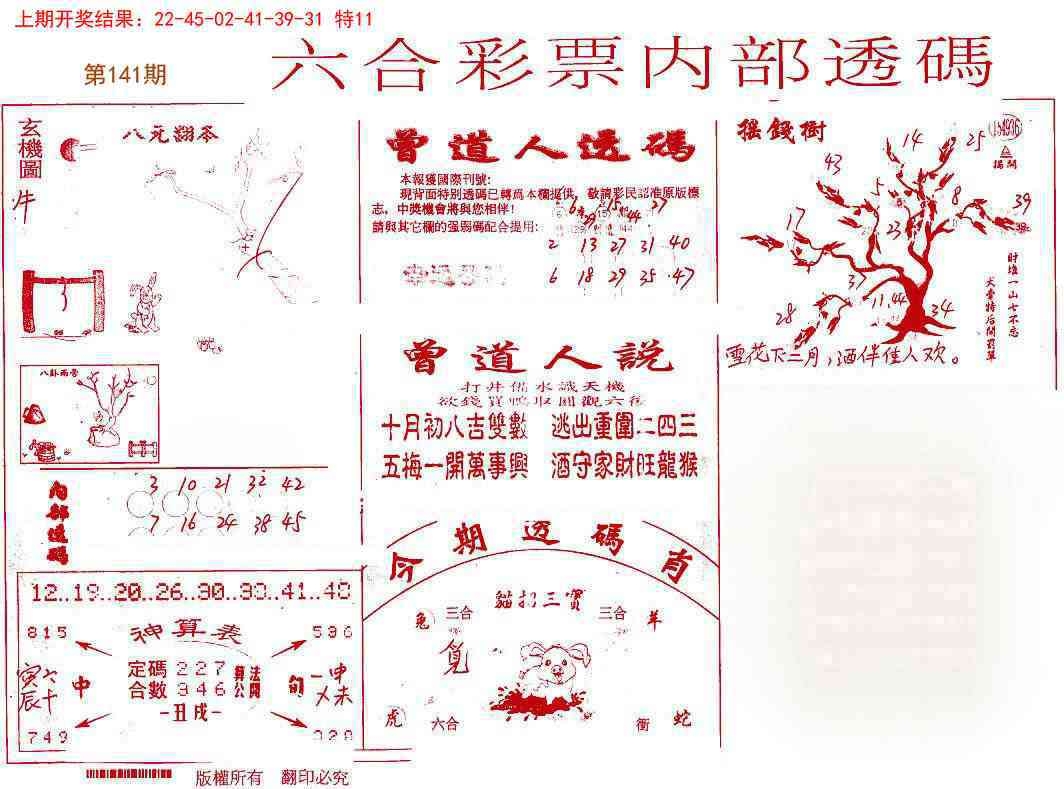 上期开奖结果：22-45-02-41-39-31 特11
第141期
六合彩票内部透碼
玄機圖
牛
曾道人透碼
本報獲國際刊號:
現背面特别透碼已轉爲本欄提供，敬請彩民認准原版標
志，中獎機會將與您相伴！
請與其它欄的强弱碼配合提用:
2 13 27 31 40
6 18 29 35 47
摇錢樹
14 25
43
5 8 39
17 23
37
11.44 34
28
財堆一山七不忘
雪花下二月，酒伴佳人欢。
曾道人説
打井備水識天機
十月初八吉雙數 逃出重圍二四三
五梅一開萬事興 酒守家財旺龍猴
八卦兩旁
内部透碼
3 10 21 32 42
7 16 24 38 45
今期透碼肖
12..19..20..26..30..39..41..48
815 神算表 536
寅辰 六十 中
定碼 227
合數 346
算法公開
-丑戌-
旬
申未
749 328
貓扣三寶
兔 三合 三合 羊
覓
虎 六合 衝 蛇
版權所有 翻印必究